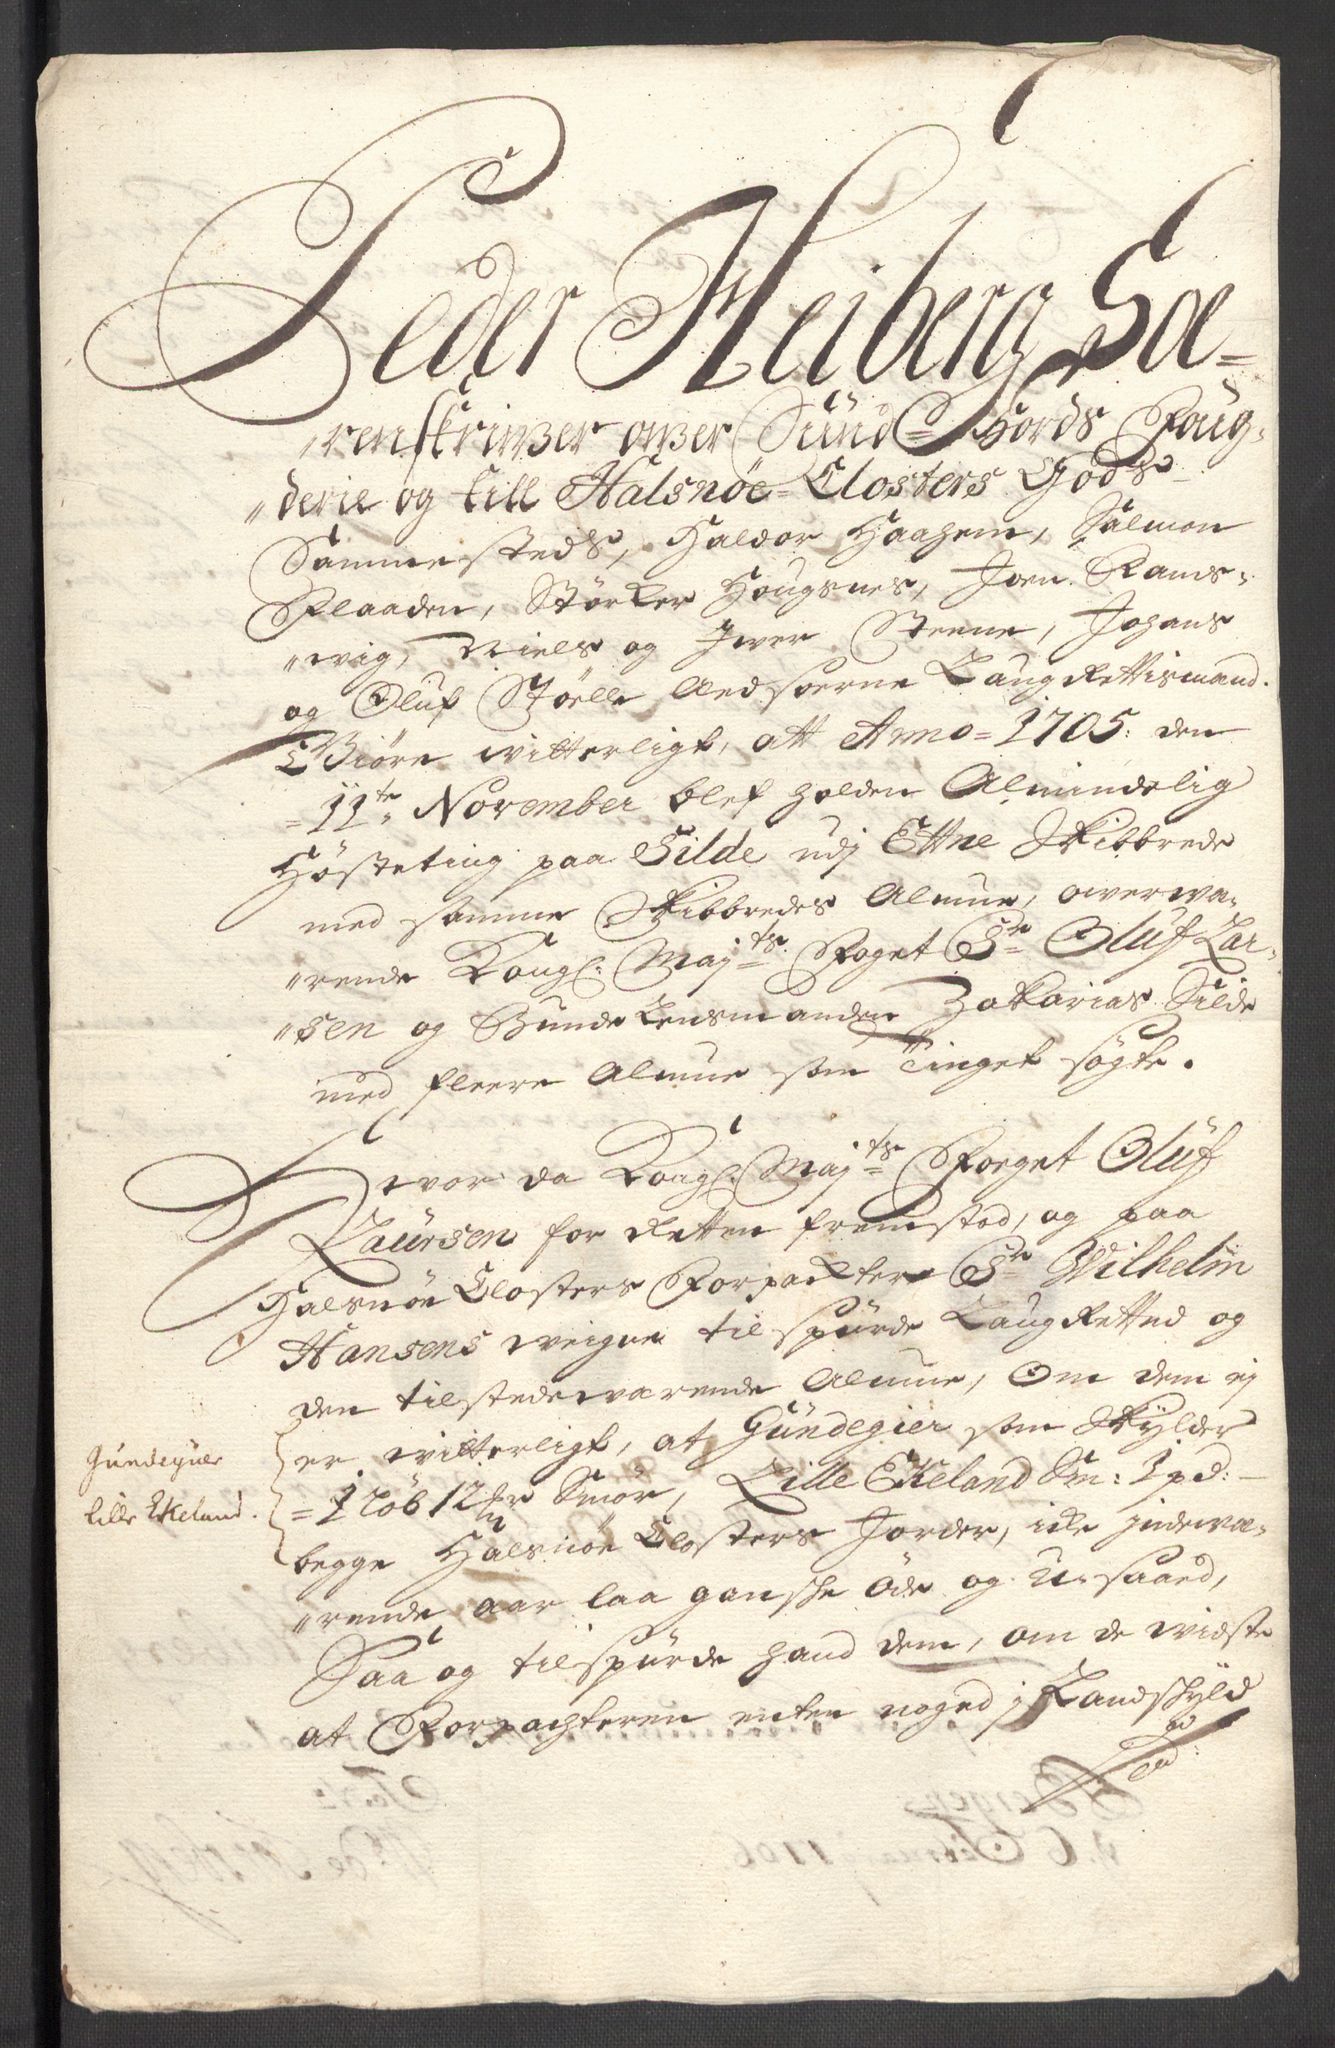 Peder Heiberg So-
"renskriwer ower Sund-Hords Foug-
"derie og till Halsnöe Closters Gods
Sammesteds, Haldor Haaheim, Salmon
Flaaden, Störker Hougsnes, Joen Rams-
"wig, Niels og Iwer Steene, Johans
og Oluf Stölle Aedsoerne Laug Rettismænd.
Giöre witterligt, att Anno= 1705: den
= 11te November blef holden Almindelig
Hösteting paa Silde udj Etne Skibbrede
med samme Skibbredes Almue, owerwæ-
"rende Kongl: Mayts: Foget Sr Oluf Lar-
"sen og Bunde Lensmanden Zakarias Silde
med fleere Almue som Tinget sögte.
Hwor da Kongl: Mayts Foeget Oluf
Laursen for Retten fremstod, og paa
Halsnöe Closters Forpackter Sr Wilhelm
Hansens weigne tilspurde Laug Retted og
den tilstedewærende Almue, Om dem ej
er witterligt, at Gundegier som Skylder
= 1 Löb 12 mr Smör, Lille Ekeland Sm: 1 pd:
begge Halsnöe Closters Jorder, icke indewæ-
"rende aar laa gansche Öde og U-saaed,
Saa og tilspurde hand dem, om de widste
at Forpachteren enten noged j Landschyld
Gundegier
Lille Ekeland.